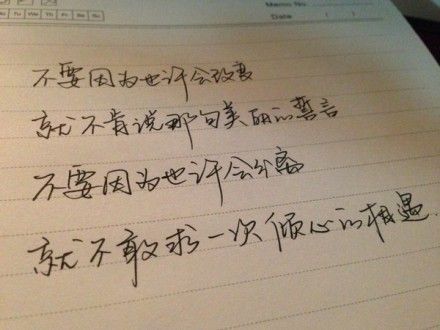 Tu We Th Fr Sa Su
Memo No.
Date ( )
不要因为也许会改变
就不肯说那句美丽的誓言
不要因为也许会分离
就不敢求一次倾心的相遇